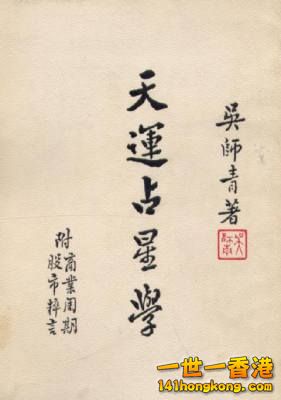 吳師青著
天運占星學
附商業周期
股市粹言
一世一香港
141hongkong.com